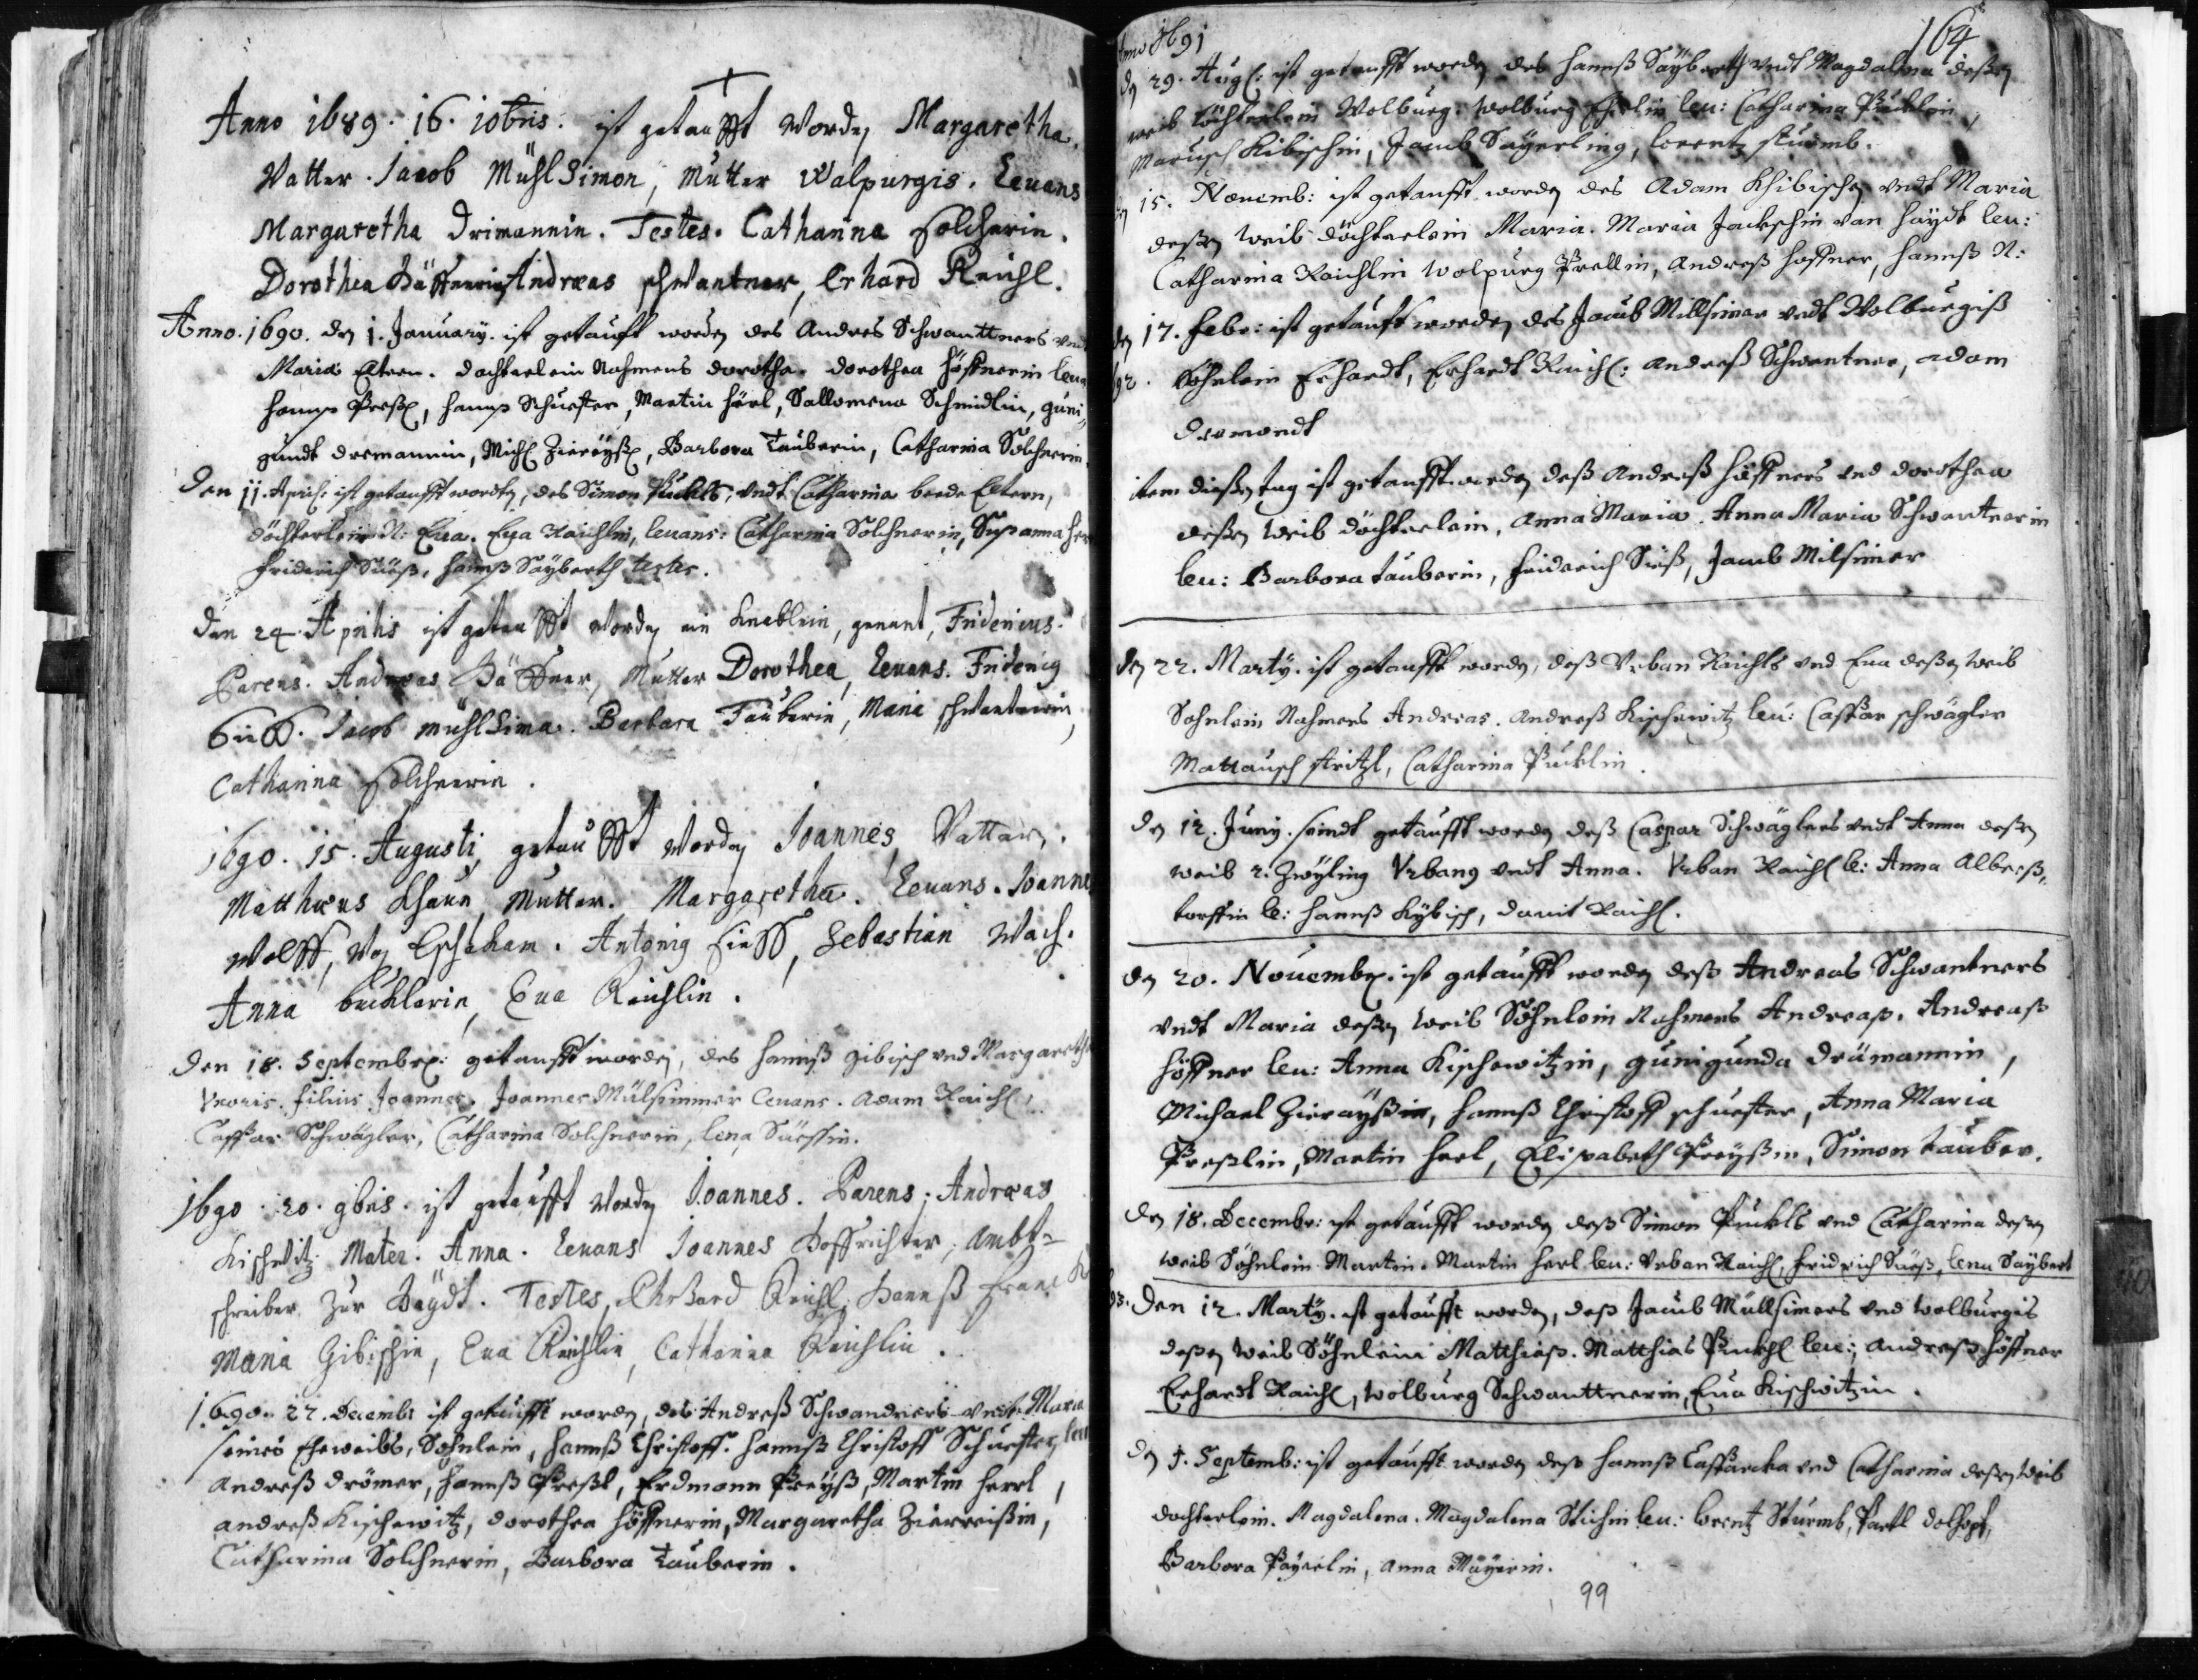 Anno 1689. 16. 10bris. ist getaufft worden Margaretha.
Vatter. Jacob MühlSimon, Mutter Walpurgis. Leuans
Margaretha Drimannin. Testes. Catharina Solchnerin.
Dorothea Häffnerin, Andreas schwantner, Erhard Reichl.
Anno. 1690. den 1. January. ist getaufft worden des Andres Schwanttners vnd
Maria Eltern. dochterlein Nahmens dorothe. dorothea Höffnerin leua
Hannß Preßl, Hannß Schuester, Martin Hörl, Sallomena Schmidlin, guni-
gundt dremannin, Michl Ziereyßl, Barbora Tauberin, Catharina Solchnerin.
Den 11. April: ist getaufft worden, des Simon Puckls, vndt Catharina beede Eltern,
döchterlein N: Eua. Eua Raichlin, leuans: Catharina Solchnerin, Susanna
Friderich Süeß, Hannß Säyberth testes.
Den 24. Aprilis ist getaufft worden ein Kneblein, genant, Fridericus.
Parens. Andreas Häffner, Mutter Dorothea, Leuans. Friderig
Sieß. Jacob mühlSima. Barbara Tauberin, Maria schwantnerin,
Catharina Solchnerin.
1690. 15. Augusti, getaufft worden Joannes, Vatter,.
Matthæus Khaun, Mutter. Margaretha. Leuans. Joanne
Wolff, von Eschaham. Antonig Sieß, Sebastian Wach.
Anna bucklerin, Eua Reichlin.
Den 18. Septembr: getaufft worden, des Hannß gibisch vnd Margareth
Vxoris. filius Joannes. Joannes Mülsimmer leuans. Adam Raichl,
Caspar Schwägler, Catharina Solchnerin, lena Süessin.
1690. 20. 9bris. ist getaufft worden Joannes. Parens. Andreas
Kischwitz. Mater. Anna. Leuans Joannes Hoffrichter, Ambt=
schreiber zur Haydt. Testes, Ehrhard Reichl, Hannß
Maria Gibischin, Eua Reichlin, Catharina Reichlin.
1690. 27. decembr ist getaufft worden, des Andreß Schwandners vndt Maria
seines Eheweibs, Söhnlein, Hannß Christoff. Hannß Christoff Schuester, leu
Andreß drömer, Hannß Preßl, Erdmann Preyß, Martin Herrl,
Andreß Kischewitz, dorothea Höffnerin, Margaretha Zierreißin,
Catharina Solchnerin, Barbora Tauberin.
Anno 1691 164
den 29. Aug: ist getaufft worden des Hannß Säyberth vndt Magdalena deßen
weib töchterlein Wolburg. Wolburg leu: Catharina Pucklin,
Marusch Kibischin, Jacub Sayerling, lorentz sturmb.
den 15. Nouemb: ist getaufft worden des Adam Khibischen vndt Maria
deßen Weib döchterlein Maria. Maria Jackschin von Haydt leu:
Catharina Raichlin Wolpurg Prellin, Andreß Hoffner, Hannß N:
den 17. Febr: ist getaufft worden, des Jacub Millsimer vndt Wolburgiß
692. Söhnlein Erhardt, Erhardt Raichl: Andreß Schwantner, adam
dremondt
item dießen tag ist getaufft worden deß Andreß Höffners vnd dorothea
deßen Weib döchterlein, Anna Maria. Anna Maria Schwantnerin
leu: Barbora tauberin, Friderich Süeß, Jacub Milsimer
den 22. Marty. ist getaufft worden, deß Vrban Raichls vnd Eua deßen Weib
Sohnlein Nahmens Andreas. Andreß Kischewitz leu: Caspar schwägler
Mattausch stritzl, Catharina Pucklin.
den 12. Juny. seindt getaufft worden deß Caspar Schwäglers vndt Anna deßen
weib 2. Zwyling Vrbang vndt Anna. Vrban Raichl le: Anna Alberß-
torffin le: Hannß Kybisch, Dauit Raichl.
den 20. Nouembr. ist getaufft worden deß Andreas Schwantners
vndt Maria deßen Weib Söhnlein Nahmens Andreas. Andreaß
Höffner leu: Anna Kischewitzin, gunigunda drümannin,
Michael Zierayßin, Hannß Christoff schuester, Anna Maria
Preßlin, Martin Herl, Elisabeth Preyßin, Simon tauber.
den 18. Decembr: ist getaufft worden deß Simon Puckls vnd Catharina deßen
weib Söhnlein Martin. Martin Herl leu: Vrban Raichl, Fridrich Süeß, lena Säybert
93. Den 12. Marty. ist getaufft worden, deß Jacub Müllsimers vnd Wolburgis
deßen Weib Söhnlein Matthiaß. Matthias Puckhl leu: Andreß Höffner
Erhardt Raichl, Wolburg Schwanttnerin, Eua Kischwitzin.
den 1. Septemb: ist getaufft worden deß Hannß Casparcka vnd Catharina deßen Weib
dochterlein. Magdalena. Magdalena Stichin leu: lorentz Sturmb, Partl dolhopf,
Barbora Payerlin, Anna Mayerin.
99